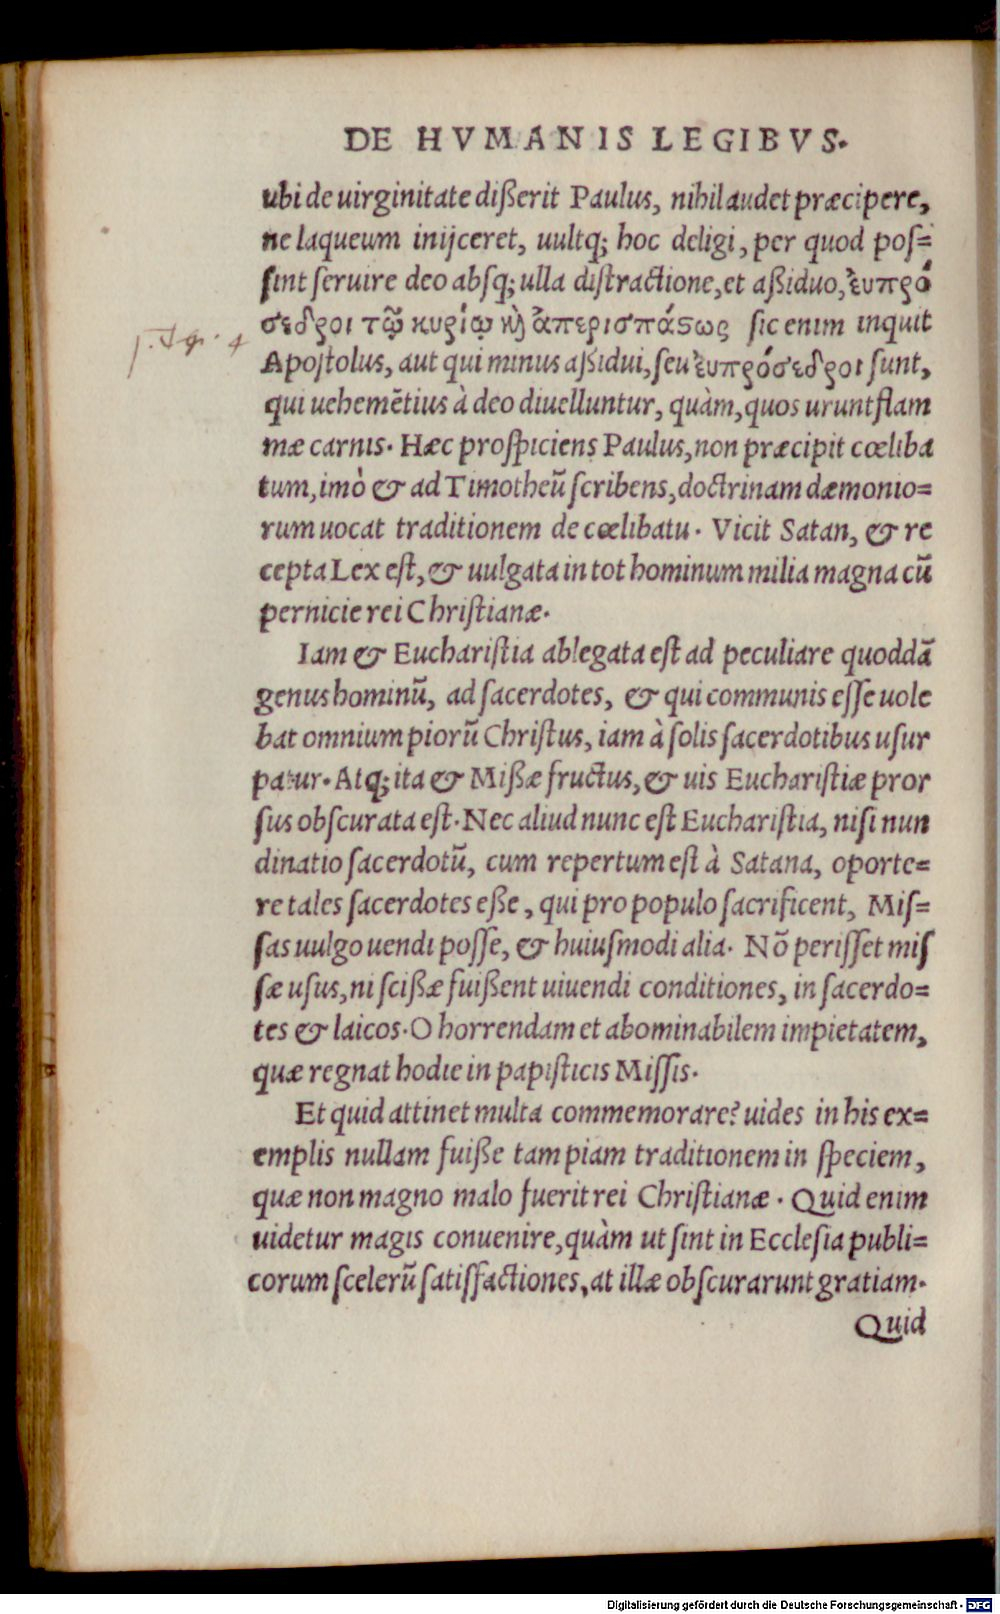 DE HVMANIS LEGIBVS.
ubi de uirginitate dißerit Paulus, nihil audet præcipere,
ne laqueum inijceret, uultq; hoc deligi, per quod poſ=
ſint ſeruire deo abſq; ulla diſtractione, et aßiduo, ἐυπρό
σεδροι τῷ κυρίῳ κὶ ἀπερισπάςως ſic enim inquit
Apoſtolus, aut qui minus aßidui, ſeu ἐυπρόσεδροι ſunt,
qui uehemētius à deo diuelluntur, quàm, quos urunt flam
mæ carnis. Hæc proſpiciens Paulus, non præcipit cœliba
tum, imò & ad Timotheū ſcribens, doctrinam dæmonio=
rum uocat traditionem de cœlibatu. Vicit Satan, & re
cepta Lex eſt, & uulgata in tot hominum milia magna cū
pernicie rei Chriſtianæ.
Iam & Euchariſtia ablegata eſt ad peculiare quoddā
genus hominū, ad ſacerdotes, & qui communis eſſe uole
bat omnium piorū Chriſtus, iam à ſolis ſacerdotibus uſur
patur. Atq; ita & Mißæ fructus, & uis Euchariſtiæ pror
ſus obſcurata eſt. Nec aliud nunc eſt Euchariſtia, niſi nun
dinatio ſacerdotū, cum repertum eſt à Satana, oporte=
re tales ſacerdotes eße, qui pro populo ſacrificent, Miſ=
ſas uulgo uendi poſſe, & huiuſmodi alia. Nō periſſet miſ
ſæ uſus, ni ſcißæ fuißent uiuendi conditiones, in ſacerdo=
tes & laicos. O horrendam et abominabilem impietatem,
quæ regnat hodie in papiſticis Miſſis.
Et quid attinet multa commemorare? uides in his ex=
emplis nullam fuiße tam piam traditionem in ſpeciem,
quæ non magno malo fuerit rei Chriſtianæ. Quid enim
uidetur magis conuenire, quàm ut ſint in Eccleſia publi=
corum ſcelerū ſatiſfactiones, at illæ obſcurarunt gratiam.
Quid
Digitalisierung gefördert durch die Deutsche Forschungsgemeinschaft - DFG